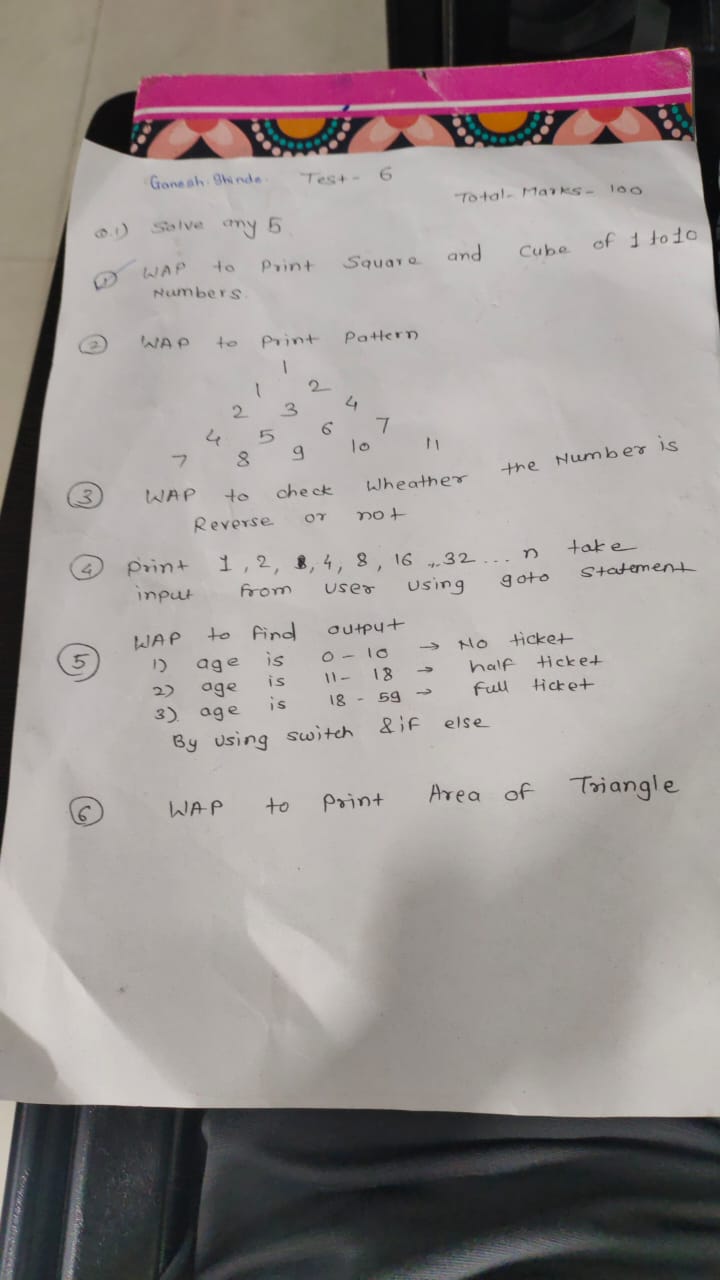 Ganesh Shinde. Test - 6
Total- Marks - 100
Q.1) Solve any 5.
① WAP to Print Square and Cube of 1 to 10
Numbers.
② WAP to Print Pattern
1
1 2
2 3 4
4 5 6 7
7 8 9 10 11
③ WAP to check Wheather the Number is
Reverse or not
④ Print 1, 2, 4, 8, 16 ,.. 32 ... n take
input from user using goto Statement
⑤ WAP to find output
1) age is 0 - 10 → No ticket
2) age is 11- 18 → half ticket
3) age is 18 - 59 → full ticket
By using switch & if else
⑥ WAP to Print Area of Triangle